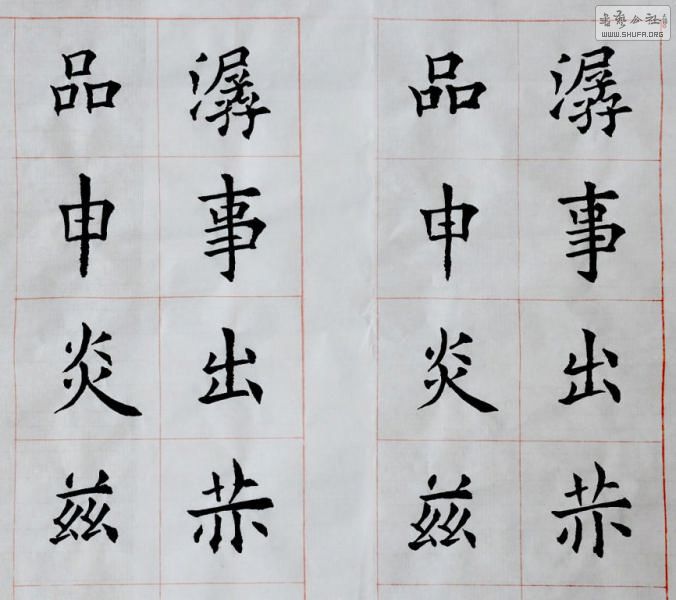 书艺公社
WWW.SHUFA.ORG
潺事出
品申炎兹
潺事出
品申炎兹